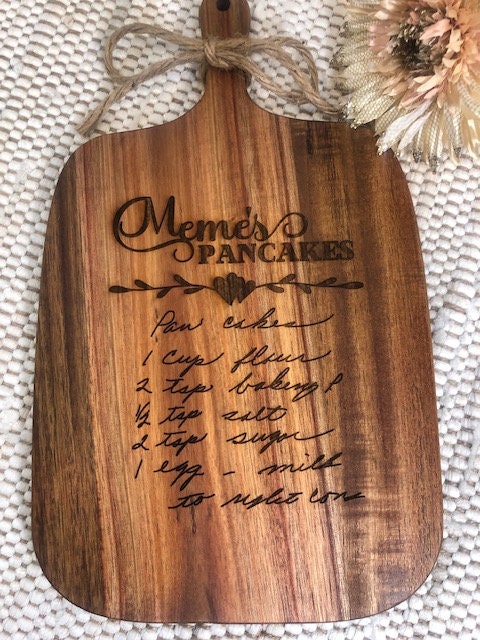 Meme's
PANCAKES
Pan cakes
1 cup flour
2 tsp baking P
½ tsp salt
2 tsp sugar
1 egg - milk
to right con